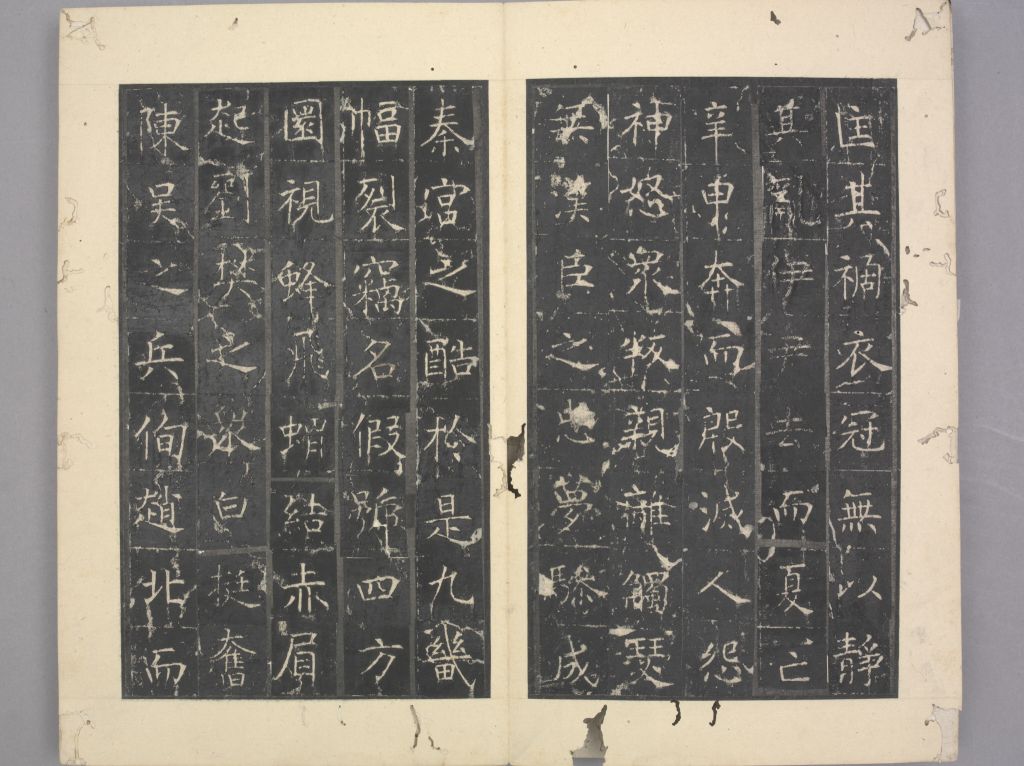 匡其禍衣冠無以靜
其亂伊尹去而夏亡
辛甲奔而殷滅人怨
神怒衆叛親離觸瑟
無漢臣之忠夢驂成
秦宮之酷於是九畿
幅裂竊名假號四方
圜視蜂飛蝟結赤眉
起劉樊之白挺奮
陳吳之兵徇趙北而